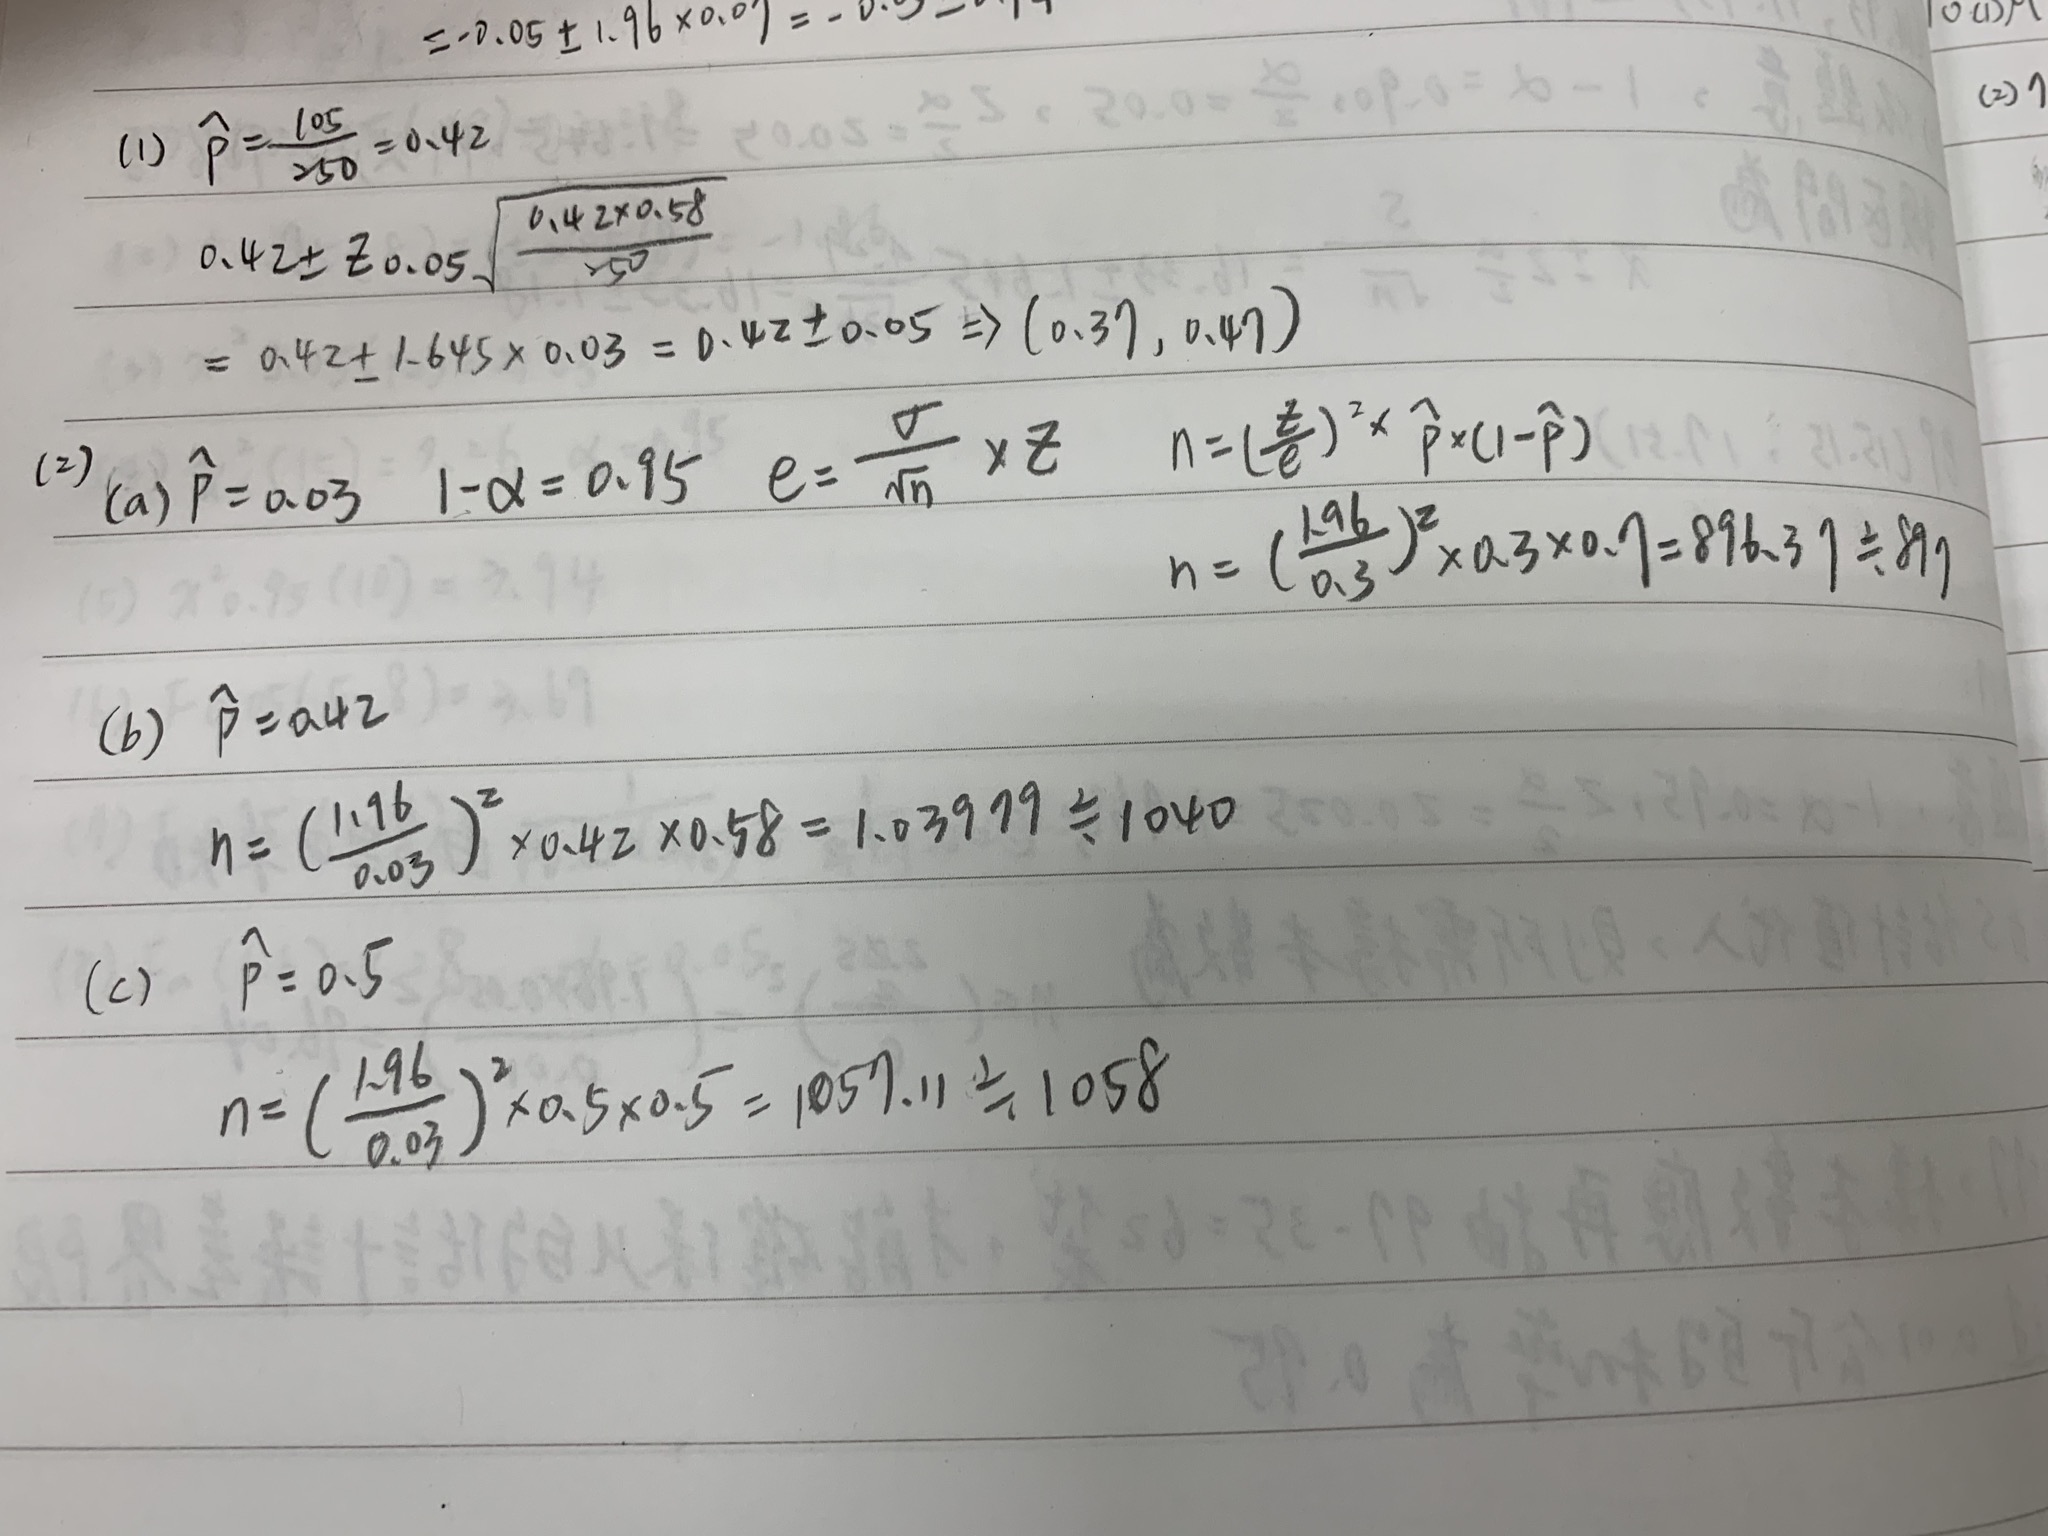 = -0.05 ± 1.96 × 0.07 = -
(1) p̂ = 105/250 = 0.42
0.42 ± Z0.05 √(0.42×0.58/250)
= 0.42 ± 1.645 × 0.03 = 0.42 ± 0.05 => (0.37, 0.47)
(2) (a) p̂ = 0.03 1-α = 0.95 e = σ/√n × Z n = (z/e)² × p̂ × (1-p̂)
n = (1.96/0.3)² × 0.3 × 0.7 = 896.37 ≒ 897
(b) p̂ = 0.42
n = (1.96/0.03)² × 0.42 × 0.58 = 1.03979 ≒ 1040
(c) p̂ = 0.5
n = (1.96/0.03)² × 0.5 × 0.5 = 1057.11 ≒ 1058